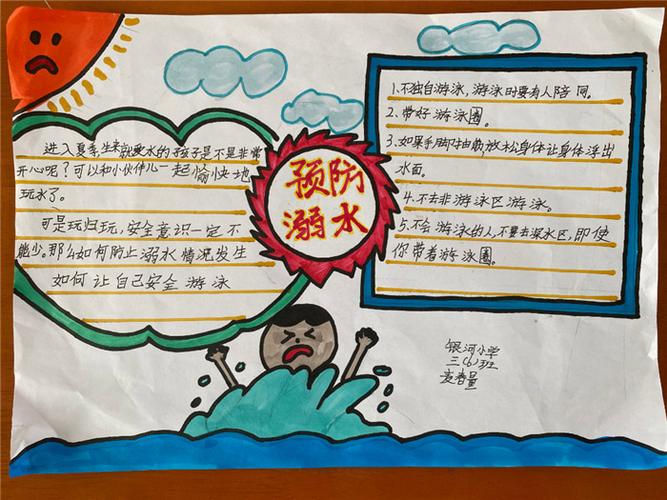 预防
溺水
进入夏季,生来就爱水的孩子是不是非常
开心呢?可以和小伙伴儿一起愉快地
玩水了。
可是玩归玩,安全意识一定不
能少。那么如何防止溺水情况发生
如何让自己安全游泳
1.不独自游泳,游泳时要有人陪同。
2.带好游泳圈。
3.如果手脚抽筋,放松身体让身体浮出
水面。
4.不去非游泳区游泳。
5.不会游泳的人,不要去深水区,即使
你带着游泳圈。
银河小学
三(6)班
麦春量